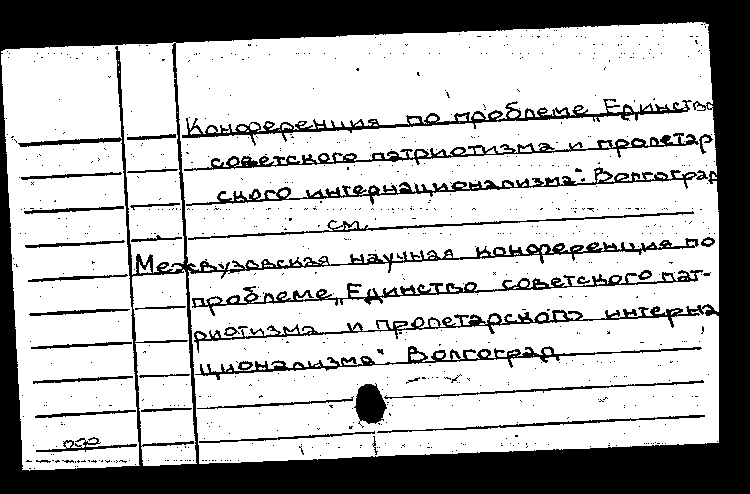 Конференция по проблеме „Единство
советского патриотизма и пролетар
ского интернационализма". Волгоград
см.
Межвузовская научная конференция по
проблеме „Единство советского пат-
риотизма и пролетарского интерна
ционализма". Волгоград